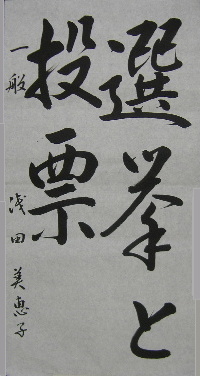 選挙と
投票
一般 浅田美恵子